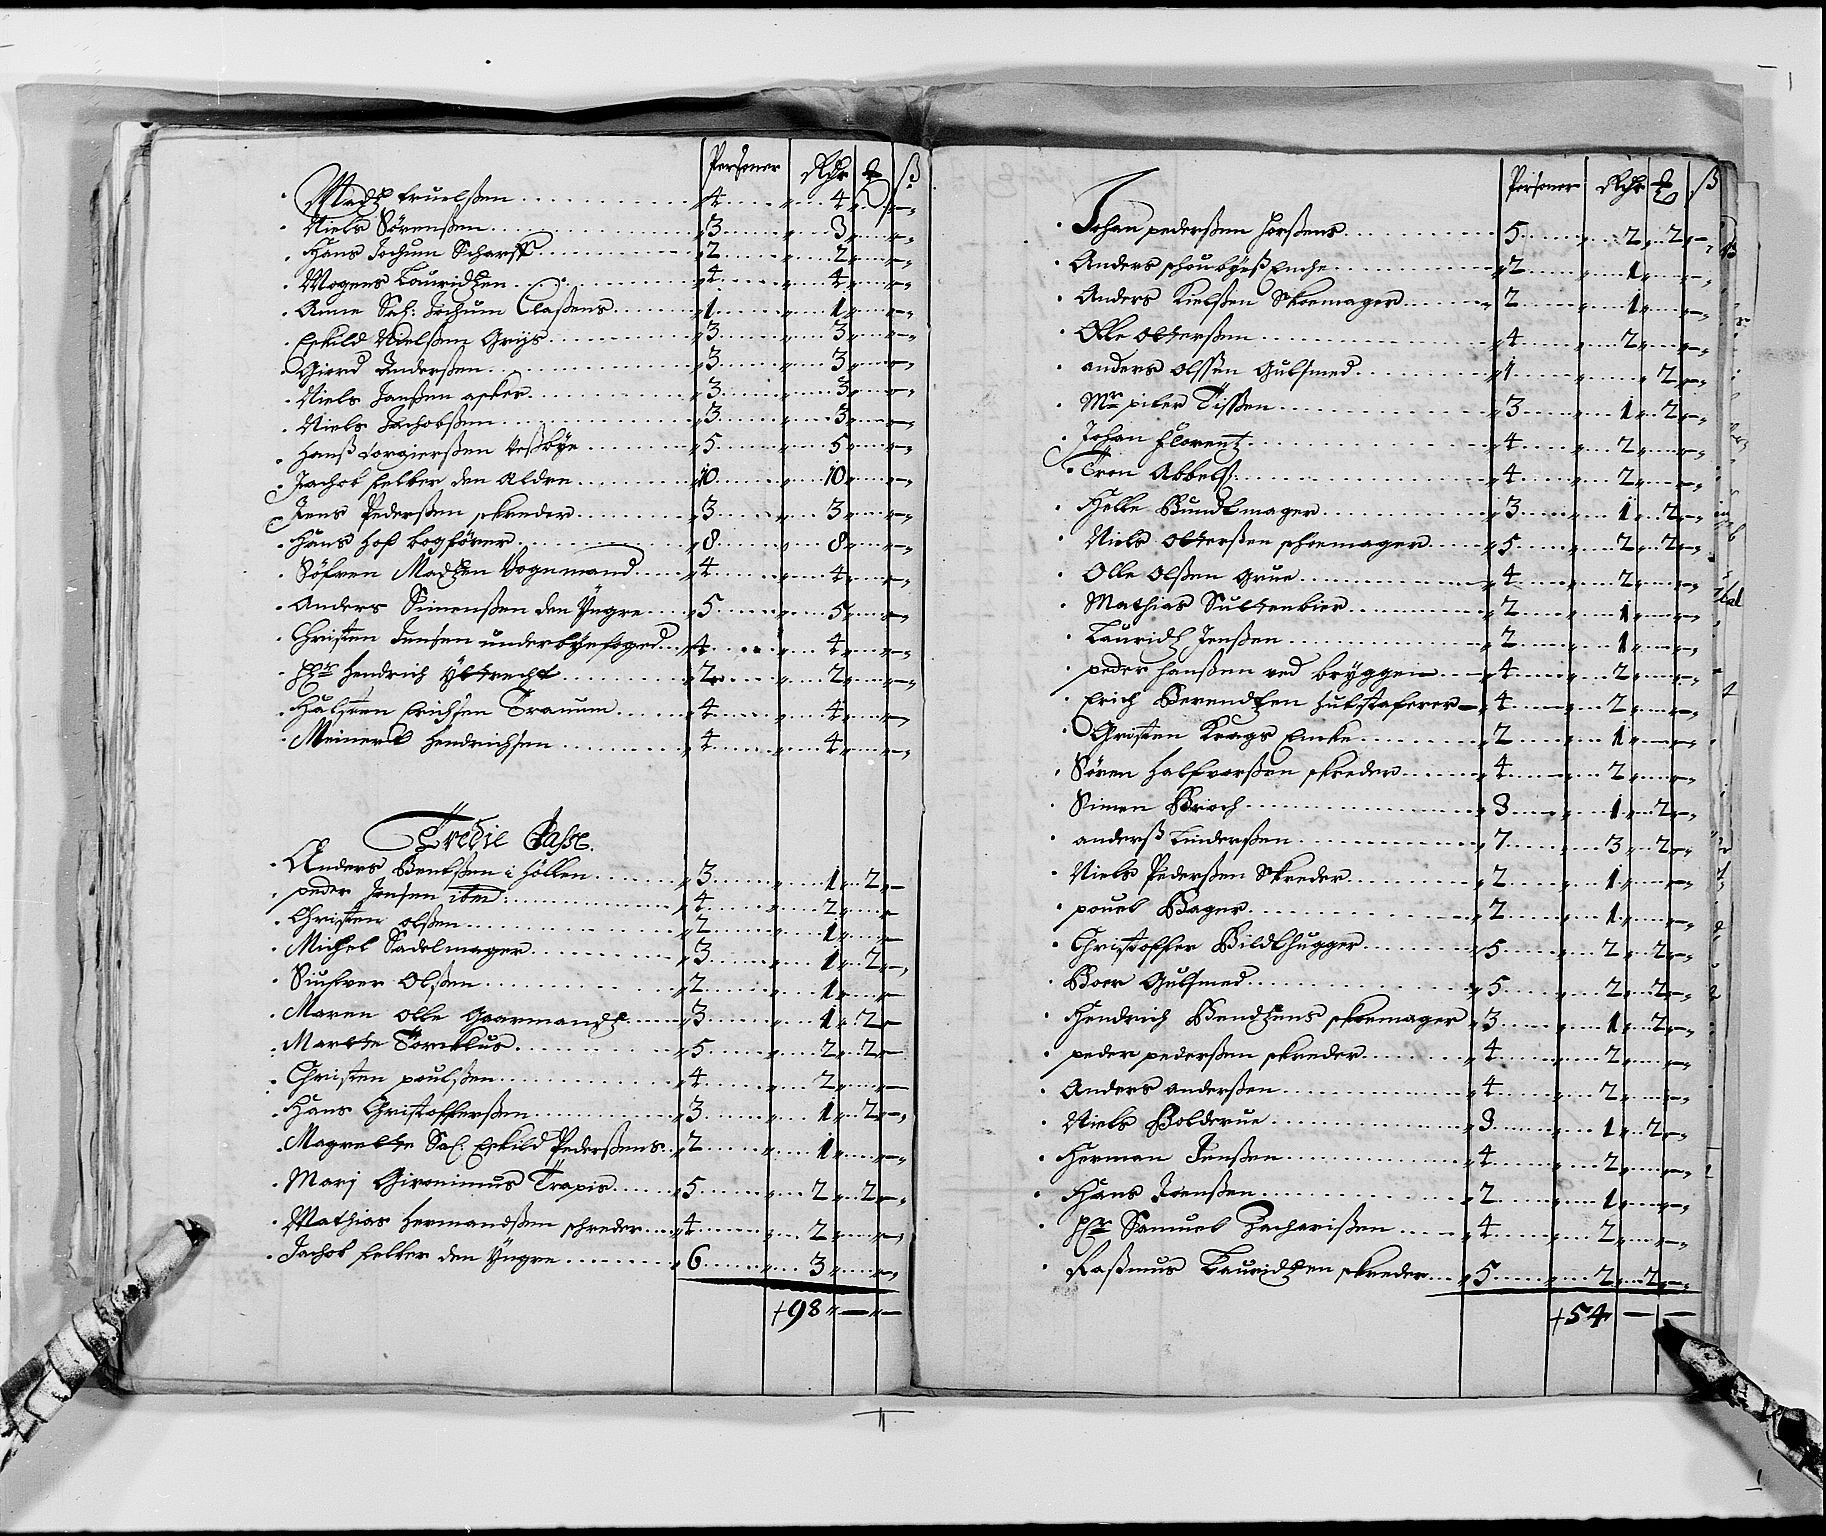 Personer Rdr ß
Madz Truelsßen 4 4 „ —
Niels Sörenßen 3 3 „ —
Hans Jochum Scharff 2 2 „ —
Mogens Lauridtzen 4 4 „ —
Anne Sal: Jochum Claßens 1 1 „ —
Eskild Nielsßen Griis 3 3 „ —
Giord Anderßen 3 3 „ —
Niels Janßen asker 3 3 „ —
Niels Jachobßen 3 3 „ —
Hanß 5 5 „ —
Jachob felber den Aldre 10 10 „ —
Jens Pederßen skreder 3 3 „ —
Hans Hof bogförer 8 8 „ —
Söfren Madtzen Vognmand 4 4 „ —
Anders Simenßen den Yngre 5 5 „ —
Christen Jensen underbyefoged 4 4 „ —
Hr Hendrich 2 2 „ —
Halsten Erichsen Tranum 4 4 „ —
Meinert Hendrichsen 4 4 „ —
Tredie Classe.
Anders Bentßen i Höllen 3 1 „ 2 „ —
peder Jensen ibm: 4 2 „ —
Christen olßen 2 1 „ —
Michel Sadelmager 3 1 „ 2 „ —
Siufver Olßen 2 1 „ —
Maren Olle Gaarmandz 3 1 „ 2 „ —
Marthe 5 2 „ 2 „ —
Christen poulßen 4 2 „ —
Hans Christofferßen 3 1 „ 2 „ —
Magrethe Sal. Eskild Pederßens 2 1 „ —
Marj Gironimus Trapis 5 2 „ 2 „ —
Mathias Hermandßen schreder 4 2 „ —
Jachob felber den Yngre 6 3 „ —
+98 „ — „ —
Personer Rdr ß
Johan pederßen 5 2 „ 2 „ —
Anders schoubyeß Enche 2 1 „ —
Anders Nielsßen Skoemager 2 1 „ —
Olle Otterßen 4 2 „ —
anders olssen Gulsmed 1 „ 2 „ —
Mr piter Tißen 3 1 „ 2 „ —
Johan Florentz 4 2 „ —
Tron Abbelß 4 2 „ —
Helle Bundtmager 3 1 „ 2 „ —
Niels Otterßen schoemager 5 2 „ 2 „ —
Olle Olßen Grue 4 2 „ —
Mathias Sultenbier 2 1 „ —
Lauridtz Jenßen 2 1 „ —
peder hanßen ved bryggen 4 2 „ —
Erich Berendtzen hutstaferer 4 2 „ —
Christen Krags Encke 2 1 „ —
Sören halfvorßen skreder 4 2 „ —
Simen Broch 3 1 „ 2 „ —
anderß Linderßen 7 3 „ 2 „ —
Niels Pederßen Skreder 2 1 „ —
pouel Bager 2 1 „ —
Christoffer Bildthugger 5 2 „ 2 „ —
Boer Gulsmed 5 2 „ 2 „ —
Hendrich Bendtzens skoemager 3 1 „ 2 „ —
peder pederßen skreder 4 2 „ —
Anders anderßen 4 2 „ —
Niels Bolderue 3 1 „ 2 „ —
Herman Jenßen 4 2 „ —
Hans Joenßen 2 1 „ —
Hr Samuel Zacharißen 4 2 „ —
Raßmus Lauridtzen skreder 5 2 „ 2 „ —
+54 — —